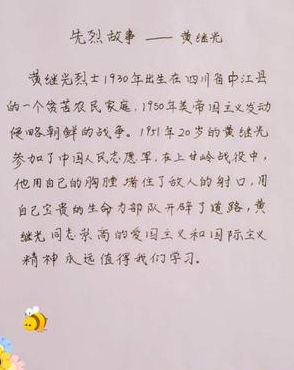 先烈故事 —— 黄继光
黄继光烈士1930年出生在四川省中江县
的一个贫苦农民家庭,1950年美帝国主义发动
侵略朝鲜的战争。1951年20岁的黄继光
参加了中国人民志愿军,在上甘岭战役中,
他用自己的胸膛堵住了敌人的射口,用
自己宝贵的生命为部队开辟了道路,黄
继光同志崇高的爱国主义和国际主义
精神永远值得我们学习。